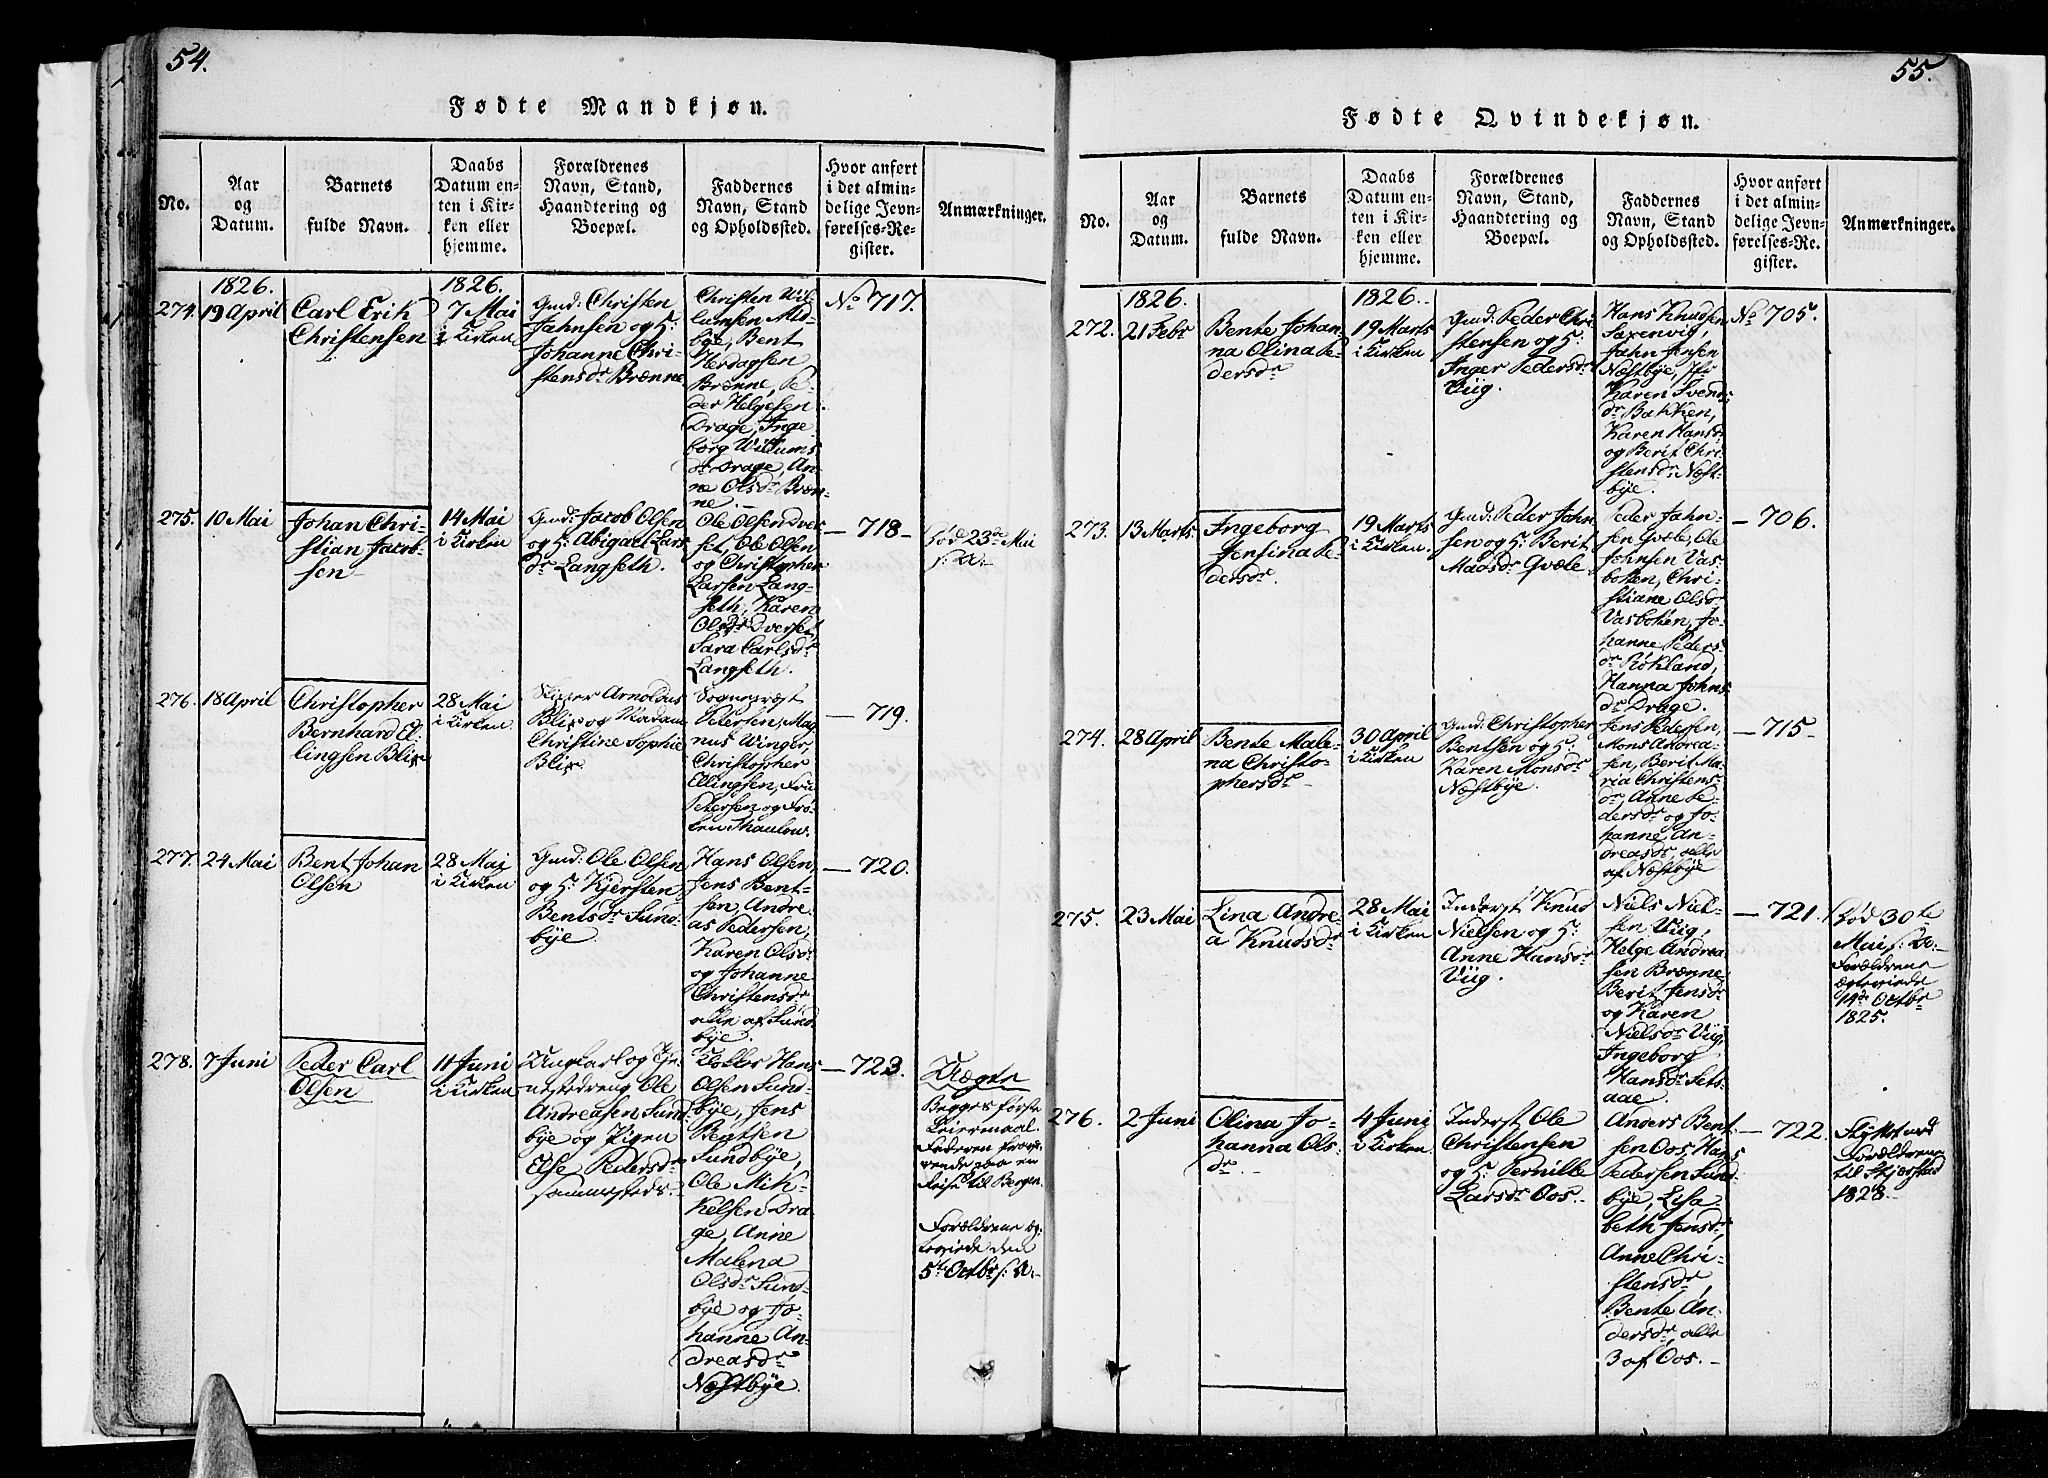 54.
Fødte Mandkjøn.
No.
Aar
og
Datum.
Barnets
fulde Navn.
Daabs
Datum en-
ten i Kir-
ken eller
hjemme.
Forældrenes
Navn, Stand,
Haandtering og
Boepæl.
Faddernes
Navn, Stand
og Opholdssted.
Hvor anført
i det almin-
delige Jevn-
førelses-Re-
gister.
Anmærkninger.
274.
1826.
19 April
Carl Erik
Christensen
1826.
7 Mai
i Kirken
Gmd: Christen
Jahnsen og H:
Johanne Chri-
stensdr Brænne
Christen Wil-
lumsen Mid-
bye, Bent
Herdagsen
Brænne, Pe-
der Helgesen
Drage, Inge-
borg Willums
dr Drage, An-
ne Olsdr Bræn-
ne.
No 717.
275.
10 Mai
Johan Chri-
stian Jacob-
sen
14 Mai
i Kirken
Gmd: Jacob Olsen
og H: Abigael Lars
dr Langseth.
Ole Olsen Dver-
set, Ole Olsen
og Christopher
Larsen Lang-
seth, Karen
Olsdr Dverset,
Sara Carlsdr
Langseth.
— 718 —
Død 23de Mai
s: A:
276.
18 April
Christopher
Bernhard El-
lingsen Blix
28 Mai
i Kirken
Skipper Arnoldus
Blix og Madam
Christine Sophie
Blix
Sognepræst
Petersen, Mag-
nus Winger,
Christopher
Ellingsen, Fru
Petersen og Frø-
ken Thaulow.
— 719.
277.
24 Mai
Bent Johan
Olsen
28 Mai
i Kirken
Gmd: Ole Olsen
og H: Kjersten
Bentsdr Sund-
bye.
Hans Olsen,
Jens Bent-
sen, Andre-
as Pedersen,
Karen Olsdr
og Johanne
Christensdr
alle af Sund
bye.
— 720.
278.
7 Juni
Peder Carl
Olsen
11 Juni
i Kirken
Ungkarl og Tje-
nestedreng Ole
Andreasen Sund
bye og Pigen
Else Pedersdr
sammesteds.
Klokker Hans
Olsen Sund-
bye, Jens
Bentsen
Sundbye,
Ole Mik-
kelsen Dra-
ge, Anne
Malena
Olsdr Sund-
bye og Jo-
hanne An-
dreasdr
Næstbye.
— 723.
Uægte
Begges første
Leiermaal.
Faderen fravæ-
rende paa en
Reise til Bergen.
Forældrene æg-
teviede den
5te Octbr s: A: —
55.
Fødte Qvindekjøn.
No.
Aar
og
Datum.
Barnets
fulde Navn.
Daabs
Datum en-
ten i Kir-
ken eller
hjemme.
Forældrenes
Navn, Stand,
Haandtering og
Boepæl.
Faddernes
Navn, Stand
og Opholdssted.
Hvor anført
i det almin-
delige Jevn-
førelses-Re-
gister.
Anmærkninger.
272.
1826.
21 Febr
Bente Johan
na Olina Pe-
dersdr
1826.
19 Marts
i Kirken
Gmd: Peder Chri
stensen og H:
Inger Pedersdr
Viig.
Hans Knudsen
Saxenvig
Jahn Jensen
Næstbye,
Karen Svends
dr Bakken,
Karen Hansdr
og Berit Chri-
stensdr Næst-
bye.
No 705.
273.
13 Marts
Ingeborg
Jensina Pe-
dersdr.
19 Marts
i Kirken
Gmd: Peder Jahn
sen og H: Berit
Madsdr Qvæle
Peder Jahn-
sen Qvæle, Ole
Johnsen Vas-
botten, Chri-
stiane Olsdr
Vasbotten, Jo-
hanne Peders
dr Røkland,
Hanna Johns
dr Drage.
— 706.
274.
28 April
Bente Male-
na Christo-
phersdr
30 April
i Kirken
Gmd: Christopher
Bentsen og H:
Karen Monsdr
Næstbye.
Jens Pedersen,
Mons Andrea-
sen, Berit Ma-
ria Christens
dr, Anne Pe-
dersdr og Jo-
hanne An-
dreasdr, alle
af Næstbye
— 715 —
275.
23 Mai
Lina Andre-
a Knudsdr
28 Mai
i Kirken
Inderst Knud
Nielsen og H:
Anne Hansdr
Viig.
Niels Niel-
sen Viig,
Helge Andrea
sen Brænne
Berit Jensdr
og Karen
Nielsdr Viig,
Ingeborg
Hansdr Sets-
aae.
— 721.
Død 30te
Mai s: A: —
Forældrene
ægteviede
14de Octbr
1825.
276.
2 Juni
Olina Jo-
hanna Ols-
dr
4 Juni
i Kirken
Inderst Ole
Christensen
og H: Pernille
Larsdr Oos. —
Anders Bent
sen Oos, Hans
Pedersen Sund
bye, Elisa
beth Jensdr,
Anne Chri-
stensdr,
Bente An-
dersdr, alle
3 af Oos. —
— 722.
Flyttet med
Forældrene
til Skjerstad
1828. —